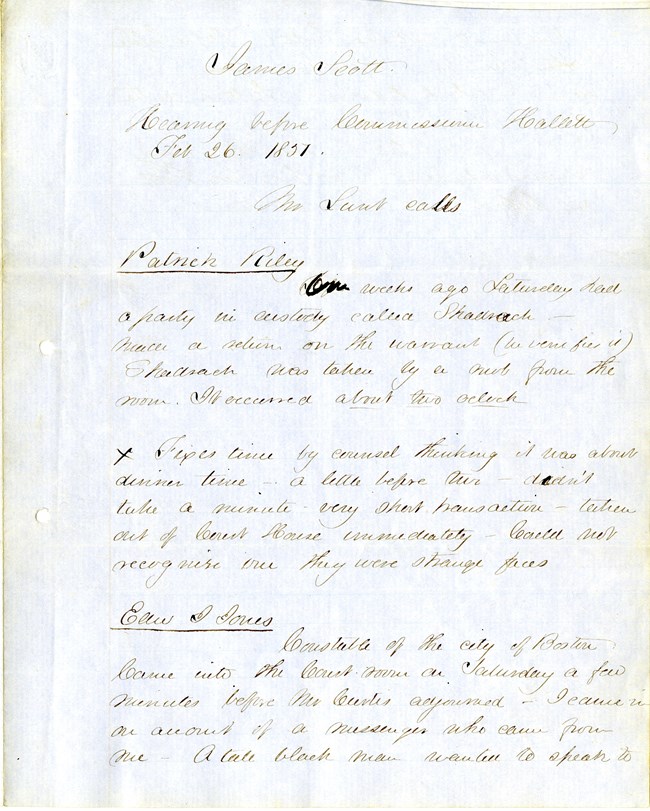 James Scott.
Hearing before Commissioner Hallett
Feb 26. 1851.
Mr Lunt calls
Patrick Riley
weeks ago Saturday had
a party in custody called Shadrach —
made a return on the warrant (he verifies it)
Shadrach was taken by a mob from the
room. It occurred about two oclock
x Fixes time by counsel thinking it was about
dinner time — a little before two — didn't
take a minute very short transaction — taken
out of Court House immediately — Could not
recognise one they were strange faces
Edw J Jones
Constable of the city of Boston
Came into the Court room on Saturday a few
minutes before Mr Curtis adjourned — I came in
on account of a messenger who came from
me — A tall black man wanted to speak to